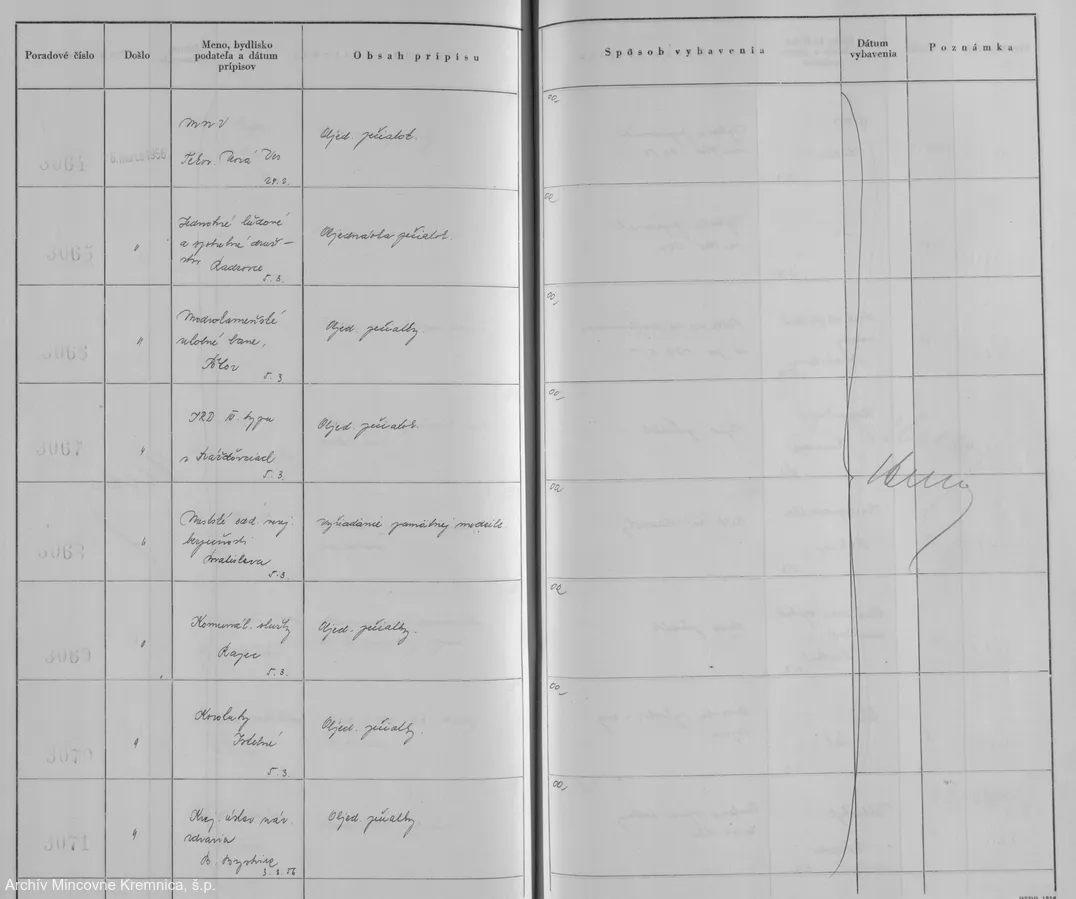 Poradové číslo
Došlo
Meno, bydlisko
podateľa a dátum
prípisov
Obsah prípisu
Spôsob vybavenia
Dátum
vybavenia
Poznámka
3064
6. marca 1956
MNV
Tekov. Nová Ves
29.2.
Objed. pečiatok.
00,
3065
"
Jednotné ľudové
a spotrebné druž-
stvo Radzovce
5.3.
Objednávka pečiatok.
00,
3066
"
Modrokameňské
uhoľné bane,
5.3.
Objed. pečiatky.
00,
3067
"
JRD III. typu
5.3.
Objed. pečiatok.
00,
3068
"
bezpečnosti
Bratislava
5.3.
Vyžiadanie pamätnej medaile
00,
3069
"
Komunál. služby
Rajec
5.3.
Objed. pečiatky.
00,
3070
"
5.3.
Objed. pečiatky.
00,
3071
"
Kraj. ústav nár.
zdravia
B. Bystrica
3.3.56
Objed. pečiatky.
00,
Archív Mincovne Kremnica, š.p.